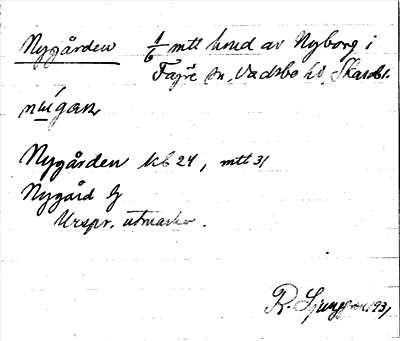 Nygården 1/6 mtl hmd av Nyborg i
Fägre sn, Vadsbo hd, Skarabl.
núgan
Nygården kb 24, mtl 31
Nygård Gj
Urspr. utmarker.
R. Ljunggren, 1931